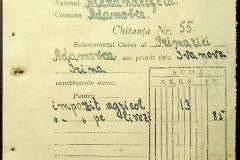 Raionul Alexandreni
Comuna Adamovca
Chitanța Nr. 55.
Subsemnatul Casier al Primăriei
Adamovca am primit dela Ivanova
Irina
următoarele sume:
SUMA
Pentru
impozit agricol 13
" " pe 85